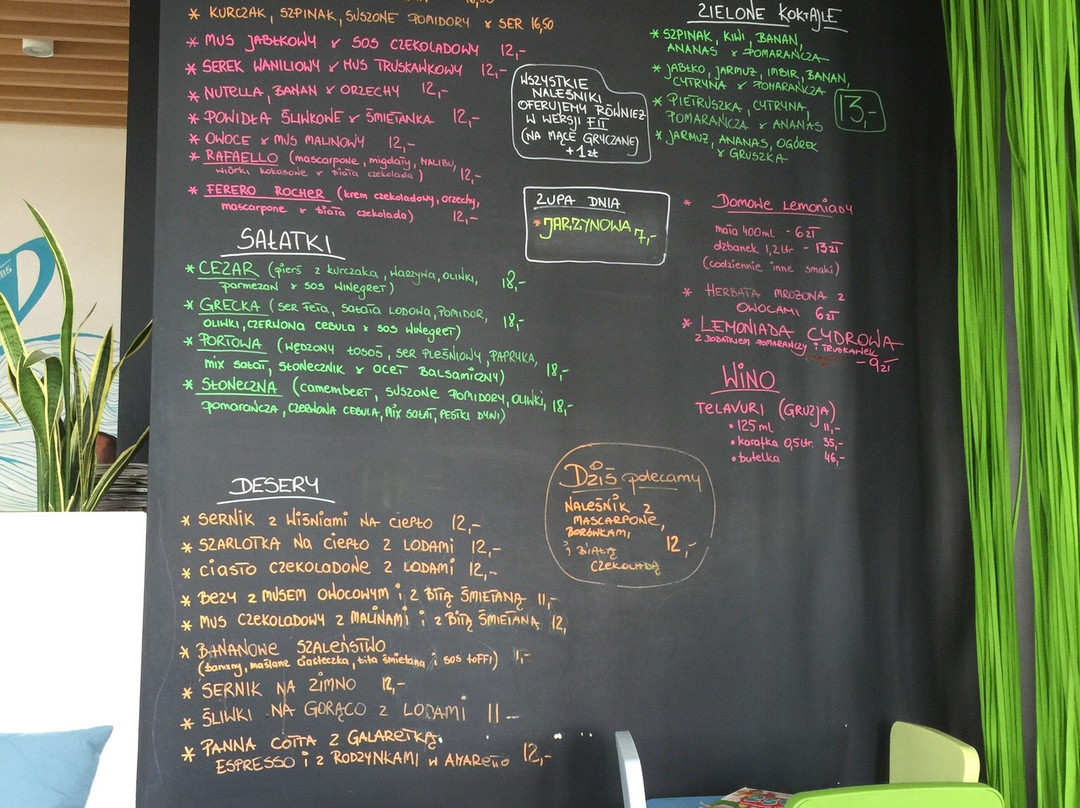 * KURCZAK, SZPINAK, SUSZONE POMIDORY & SER 16,50
* MUS JABŁKOWY & SOS CZEKOLADOWY 12,-
* SEREK WANILIOWY & MUS TRUSKAWKOWY 12,-
* NUTELLA, BANAN & ORZECHY 12,-
* POWIDŁA ŚLIWKOWE & ŚMIETANKA 12,-
* OWOCE & MUS MALINOWY 12,-
* RAFAELLO (mascarpone, migdały, MALIBU,
wiórki kokosowe & biała czekolada) 12,-
* FERERO ROCHER (krem czekoladowy, orzechy,
mascarpone & biała czekolada) 12,-
WSZYSTKIE
NALEŚNIKI
OFERUJEMY RÓWNIEŻ
W WERSJI FIT
(NA MĄCE GRYCZANEJ)
+1zł
ZIELONE KOKTAJLE
* SZPINAK, KIWI, BANAN,
ANANAS & POMARAŃCZA
* JABŁKO, JARMUŻ, IMBIR, BANAN,
CYTRYNA & POMARAŃCZA
* PIETRUSZKA, CYTRYNA,
POMARAŃCZA & ANANAS
* JARMUŻ, ANANAS, OGÓREK
& GRUSZKA
13,-
ZUPA DNIA
* JARZYNOWA 7,-
* Domowe Lemoniady
mała 400ml - 6zł
dzbanek 1,2ltr - 13zł
(codziennie inne smaki)
* HERBATA MROŻONA Z
OWOCAMI 6zł
* LEMONIADA CYDROWA
Z DODATKIEM POMARAŃCZY I TRUSKAWEK
- 9zł
WINO
TELAVURI (GRUZJA)
• 125 ml 11,-
• karafka 0,5ltr. 35,-
• butelka 46,-
SAŁATKI
* CEZAR (pierś z kurczaka, warzywa, OLIWKI,
parmezan & SOS WINEGRET) 18,-
* GRECKA (SER FETA, SAŁATA LODOWA, POMIDOR,
OLIWKI, CZERWONA CEBULA & SOS WINEGRET) 18,-
* PORTOWA (WĘDZONY ŁOSOŚ, SER PLEŚNIOWY, PAPRYKA,
MIX SAŁAT, SŁONECZNIK & OCET BALSAMICZNY) 18,-
* SŁONECZNA (CAMEMBERT, SUSZONE POMIDORY, OLIWKI,
POMARAŃCZA, CZERWONA CEBULA, MIX SAŁAT, PESTKI DYNI) 18,-
DESERY
* SERNIK Z WIŚNIAMI NA CIEPŁO 12,-
* SZARLOTKA NA CIEPŁO Z LODAMI 12,-
* CIASTO CZEKOLADOWE Z LODAMI 12,-
* BEZY Z MUSEM OWOCOWYM I Z BITĄ ŚMIETANĄ 11,-
* MUS CZEKOLADOWY Z MALINAMI I Z BITĄ ŚMIETANĄ 12,
* BANANOWE SZALEŃSTWO
(banany, maślane ciasteczka, bita śmietana i sos toffi)
* SERNIK NA ZIMNO 12,-
* ŚLIWKI NA GORĄCO Z LODAMI 11 -
* PANNA COTTA Z GALARETKĄ
ESPRESSO I Z RODZYNKAMI W AMARETTO 12,-
Dziś polecamy
NALEŚNIK Z
MASCARPONE,
BORÓWKAMI,
i BIAŁĄ
CZEKOLADĄ
12,-